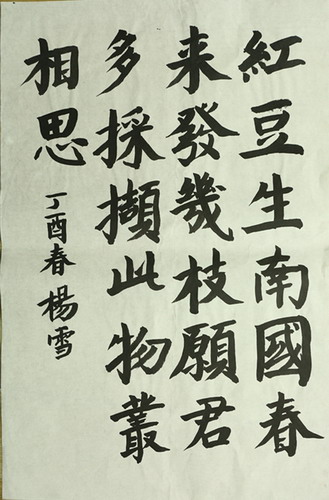 紅豆生南國春
来發幾枝願君
多採擷此物叢
相思
丁酉春楊雪